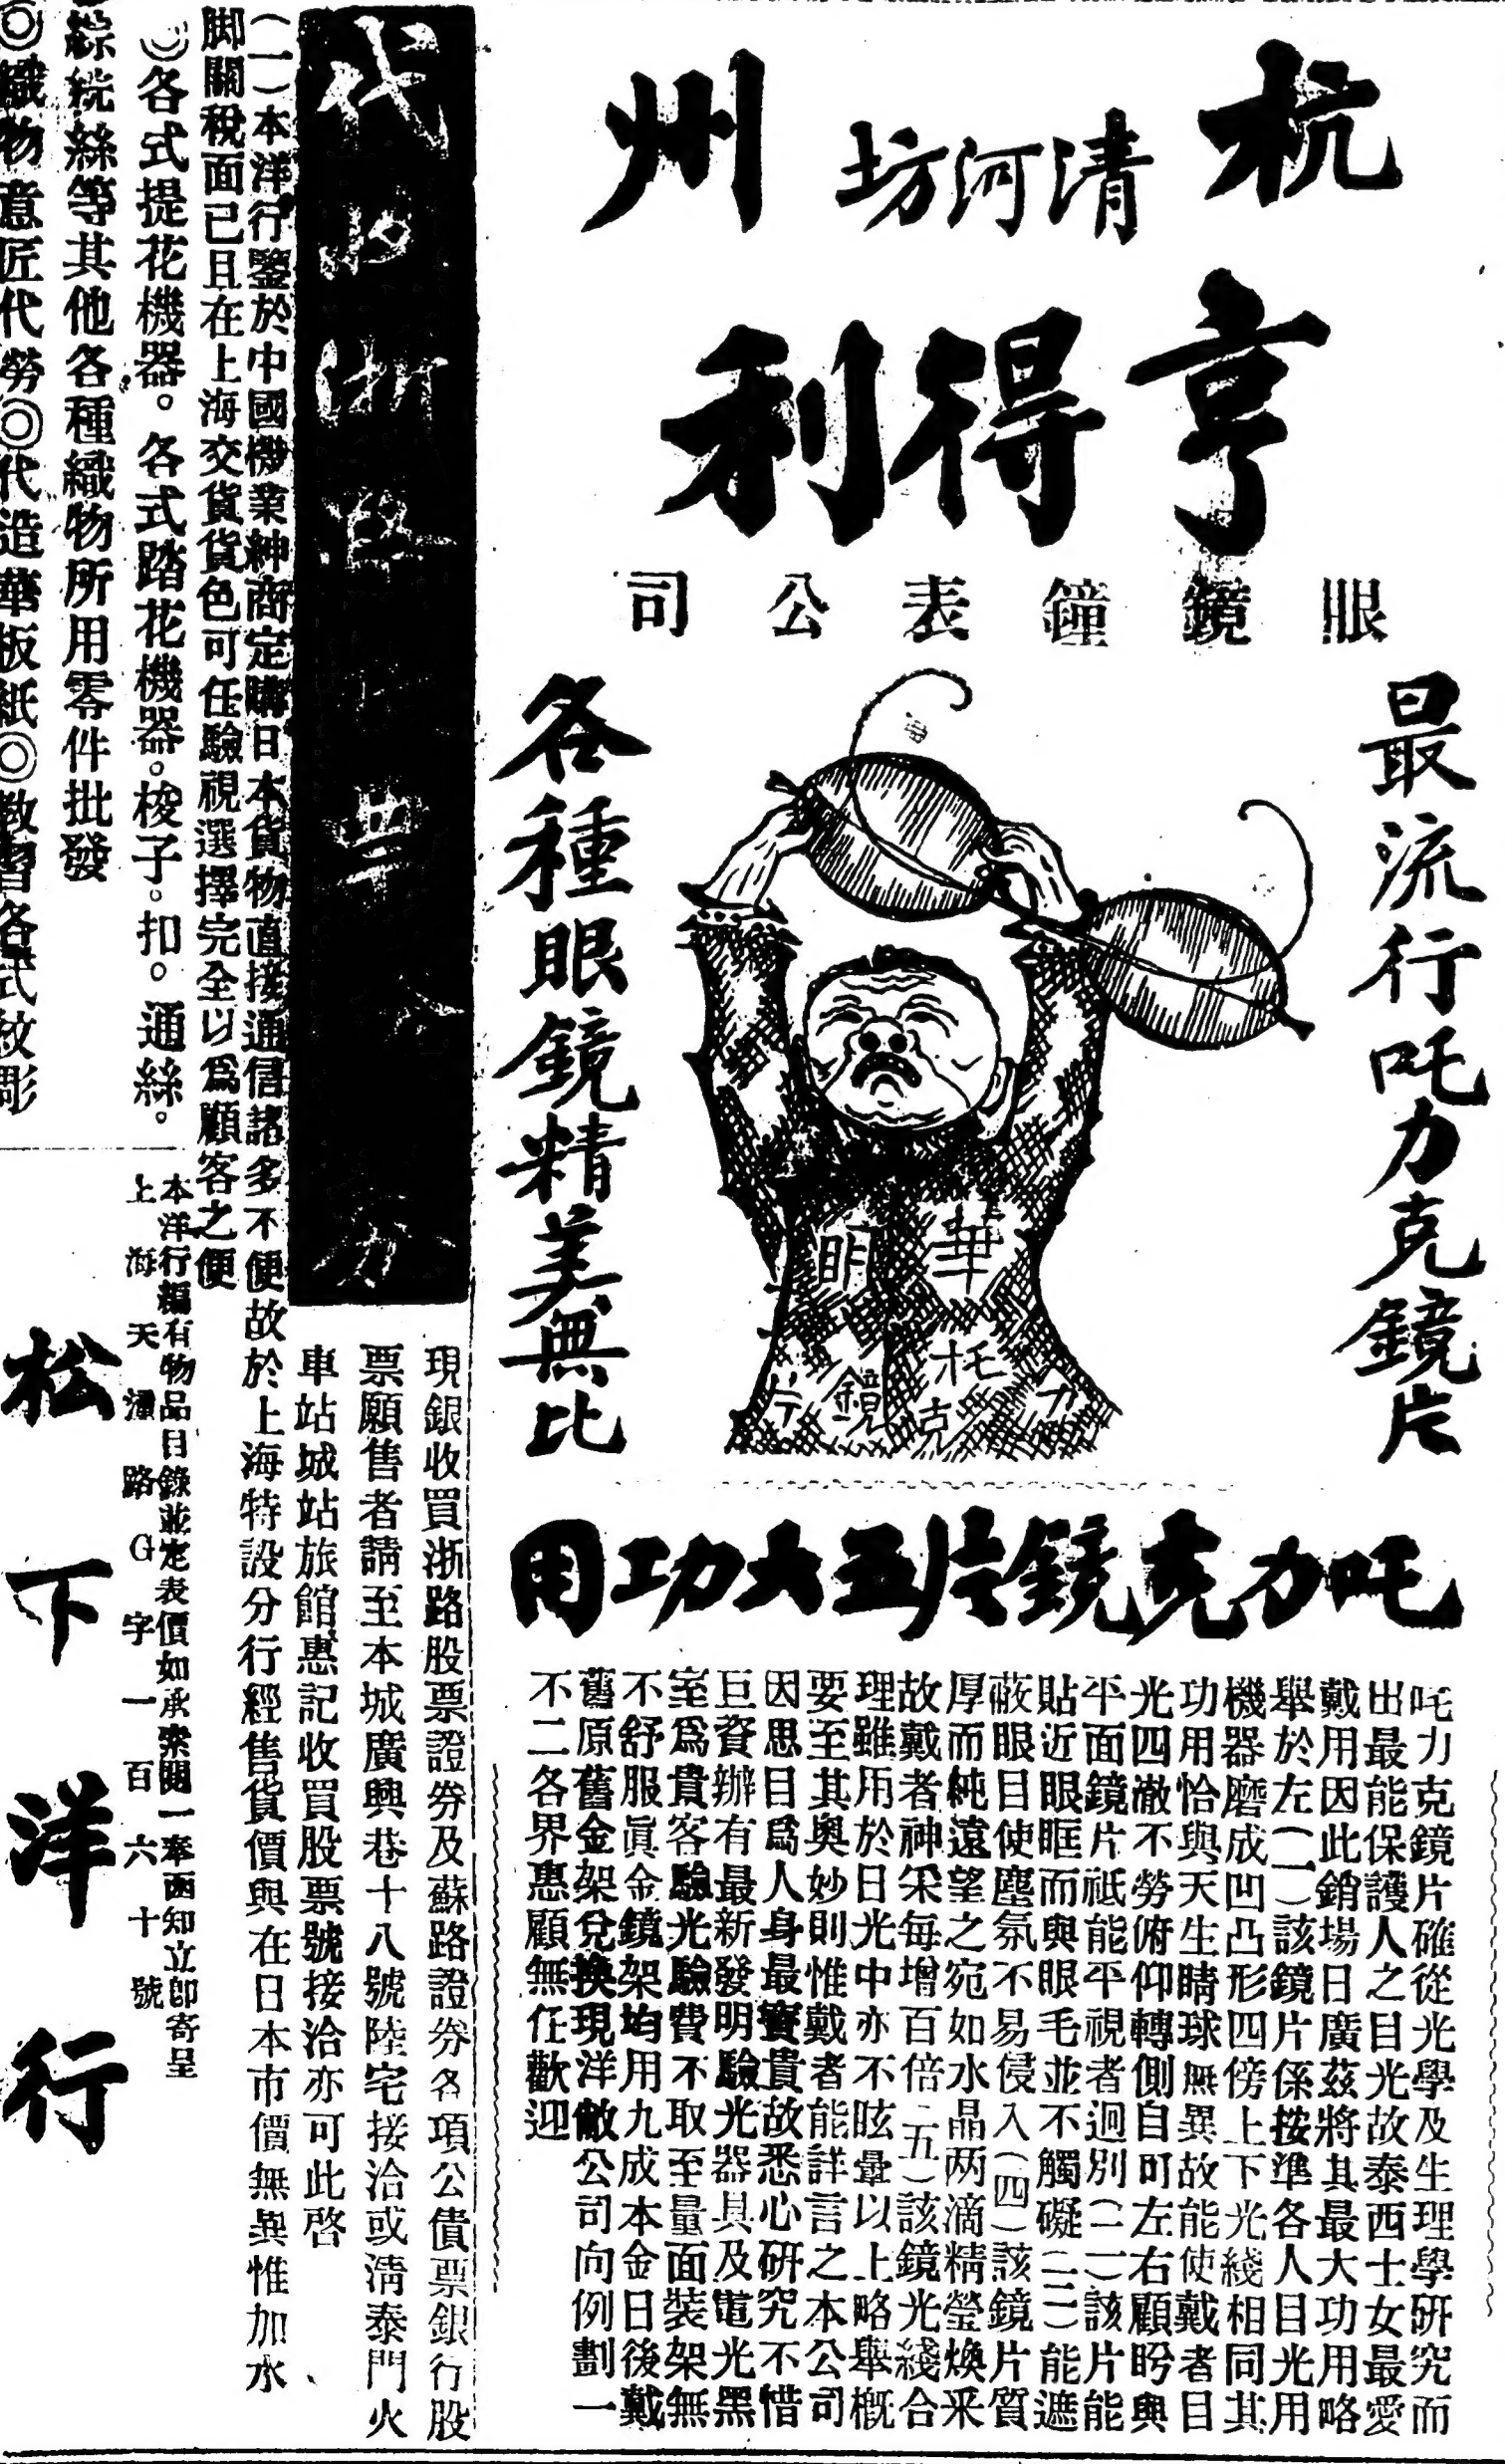 杭州
清河坊
亨得利
眼鏡鐘表公司
最流行吒力克鏡片
各種眼鏡精美無比
華
托力克
鏡片
吒力克鏡片五大功用
吒力克鏡片確從光學及生理學研究而
出最能保護人之目光故泰西士女最愛
戴用因此銷場日廣茲將其最大功用略
舉於左(一)該鏡片係按準各人目光用
機器磨成凹凸形四傍上下光綫相同其
功用恰與天生睛球無異故能使戴者目
光四澈不勞俯仰轉側自可左右顧盼與
平面鏡片祗能平視者迥別(二)該片能
貼近眼眶而與眼毛並不觸礙(三)能遮
蔽眼目使塵氛不易侵入(四)該鏡片質
厚而純遠望之宛如水晶两滴精瑩煥采
故戴者神采每增百倍(五)該鏡光綫合
理雖用於日光中亦不眩暈以上略舉概
要至其奥妙則惟戴者能詳言之本公司
因思目爲人身最寶貴故悉心研究不惜
巨資辦有最新發明驗光器具及電光黑
室爲貴客驗光驗費不取至量面裝架無
不舒服眞金鏡架均用九成本金日後戴
舊原舊金架兌換現洋敝公司向例劃一
不二各界惠顧無任歡迎
現銀收買浙路股票證券及蘇路證券各項公債票銀行股
票願售者請至本城廣興巷十八號陸宅接洽或淸泰門火
車站城站旅館惠記收買股票號接洽亦可此啓
(一)本洋行鑒於中國機業紳商定購日本貨物直接通信諸多不便故於上海特設分行經售貨價與在日本市價無異惟加水
脚關稅面已且在上海交貨貨色可任驗視選擇完全以爲顧客之便
各式提花機器。各式踏花機器。梭子。扣。通絲。
綜統絲等其他各種織物所用零件批發
◎織物意匠代勞◎代造華板紙◎教習各式紋彫
本洋行編有物品目錄並定表價如承索閱一奉函知立卽寄呈
上海天潼路G字一百六十號
松下洋行